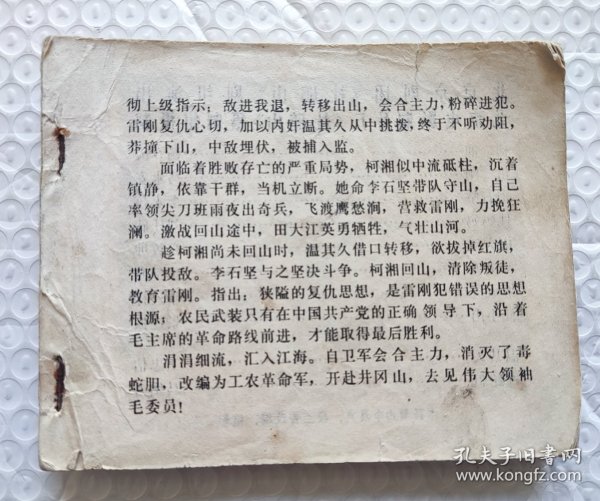 彻上级指示：敌进我退，转移出山，会合主力，粉碎进犯。
雷刚复仇心切，加以内奸温其久从中挑拨，终于不听劝阻，
莽撞下山，中敌埋伏，被捕入监。
面临着胜败存亡的严重局势，柯湘似中流砥柱，沉着
镇静，依靠干群，当机立断。她命李石坚带队守山，自己
率领尖刀班雨夜出奇兵，飞渡鹰愁涧，营救雷刚，力挽狂
澜。激战回山途中，田大江英勇牺牲，气壮山河。
趁柯湘尚未回山时，温其久借口转移，欲拔掉红旗，
带队投敌。李石坚与之坚决斗争。柯湘回山，清除叛徒，
教育雷刚。指出：狭隘的复仇思想，是雷刚犯错误的思想
根源；农民武装只有在中国共产党的正确领导下，沿着
毛主席的革命路线前进，才能取得最后胜利。
涓涓细流，汇入江海。自卫军会合主力，消灭了毒
蛇胆，改编为工农革命军，开赴井冈山，去见伟大领袖
毛委员！
孔夫子旧书网
www.kongfz.com